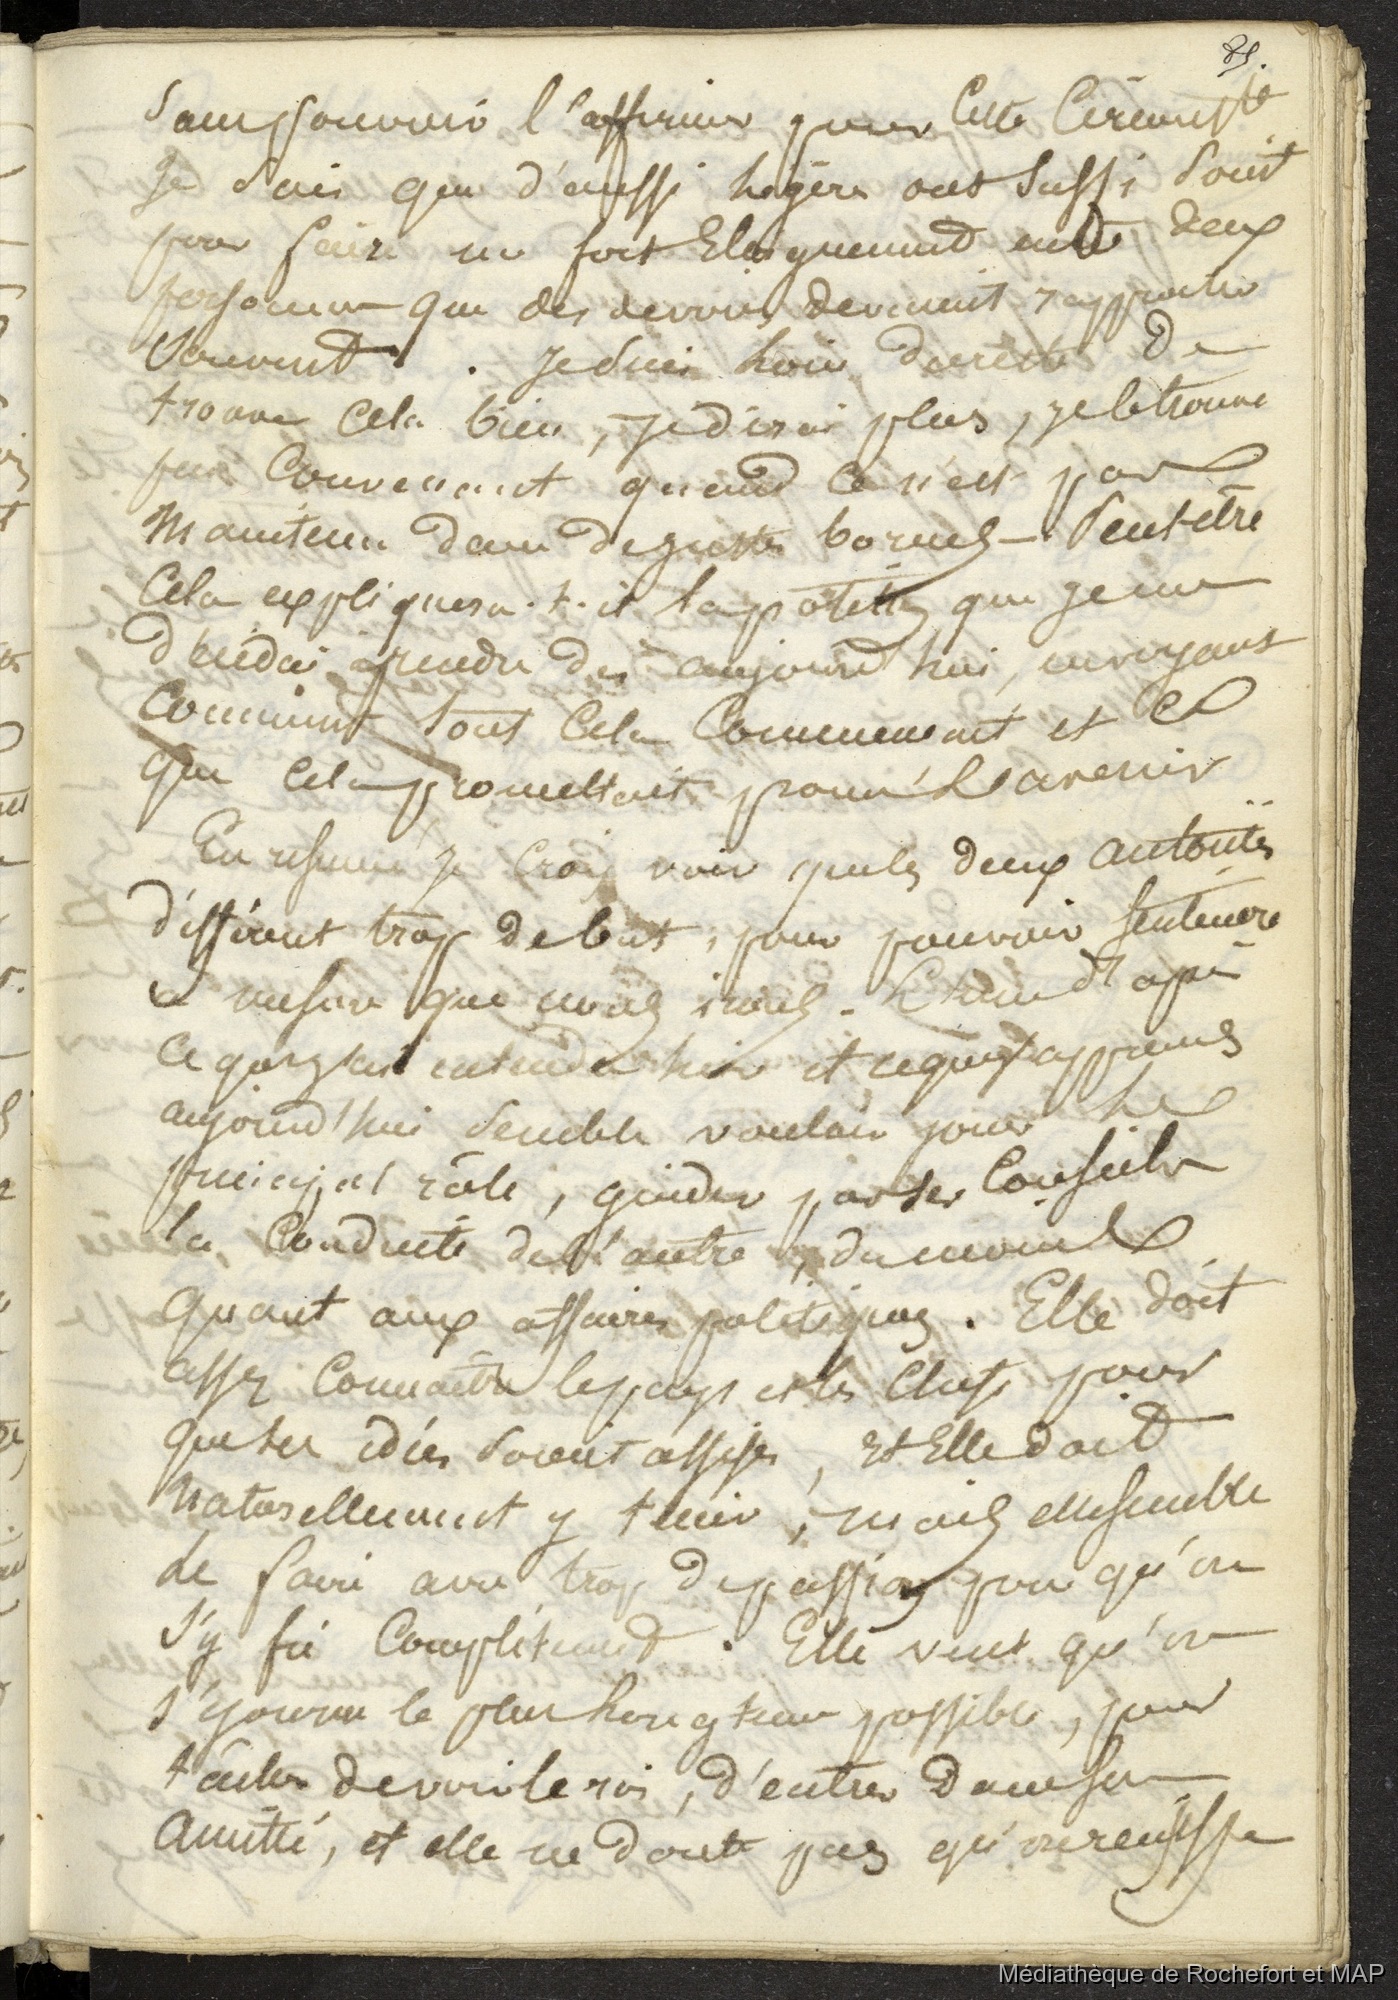 85.
Sans pouvoir l'affirmer pour Cette Circonst.ce
Je Sais que d'aussi légère ont Suffi Souvt
pour faire un fort Eloignement entre deux
personnes que des devoirs devraient rapprocher
Souvent. Je suis loin du reste de
trouver Cela bien, Je dirai plus, je le trouve
peu Convenant quand Ce n'est pas
Maintenu dans de justes bornes. Peut-être
Cela expliquera-t-il la position que je me
décidai à prendre dès aujourd'hui, en voyant
Comment tout Cela Commencait et Ce
que cela promettait pour l'avenir
En résumé je Crois voir que les deux autorités
diffèrent trop de but, pour pouvoir s'entendre
à mesure que nous irons. L'une d'après
Ce que j'ai entendu hier et ce que j'apprends
aujourd'hui semble vouloir jouer le
principal rôle, guider par ses Conseils
la Conduite de l'autre, du moins
quant aux affaires politiques. Elle doit
assez Connaître le pays et les Chefs pour
que ses idées soient assises, et Elle doit
Naturellement y tenir, mais elle semble
le faire avec trop de passion pour qu'on
s'y fie Complètement. Elle veut qu'on
séjourne le plus longtems possible, pour
tâcher de voir le roi, d'entrer dans son
Amitié, et elle ne doute pas qu'on reussisse
Médiathèque de Rochefort et MAP